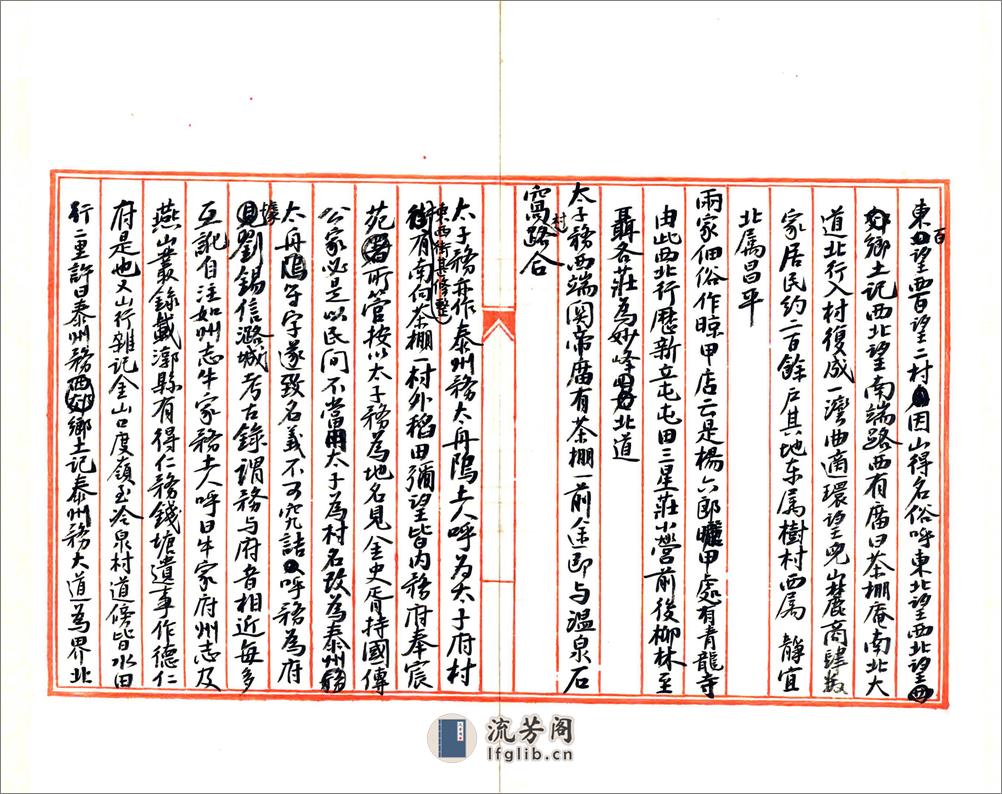 東百望西百望二村因山得名俗呼東北望西北望西
郊鄉土記西北望南端路西有廣曰茶棚庵南北大
道北行入村復成一灣西適環望兒山麓商肆數
家居民約二百餘戶其地东属樹村西属静宜
北属昌平
兩家佃俗作晾甲店云是楊六郎曬甲處有青龍寺
由此西北行歷新立屯屯田三星莊小營前後柳林至
聶各莊為妙峰北道
太子務村西端関帝廣有茶棚一前途即与温泉石
窩路合
太子務亦作泰州務太舟隖土人呼為太子府村
東西街甚修整有南向茶棚一村外稻田彌望皆内務府奉宸
苑所管按以太子務為地名見金史胥持國傳
公家必是以民间不當用太子為村名改為泰州務
太舟隖等字遂致名義不可究詰呼務為府
據劉錫信潞城考古錄謂務与府音相近每多
互訛自注如州志牛家務土人呼曰牛家府州志及
燕山叢錄載漷縣有得仁務錢塘遺事作德仁
府是也又山行雜记金山口度嶺至冷泉村道傍皆水田
行二里許曰泰州務西郊鄉土记泰州務大道為界北
流芳阁
lfglib.cn